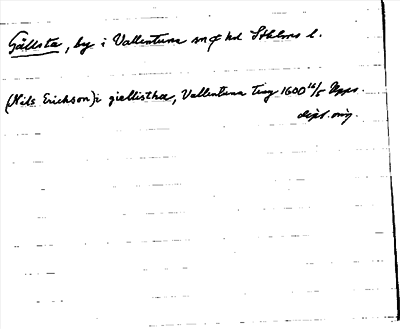 Gällsta, by i Vallentuna sn o hd Sthlms l.
(Nils Erickson) i giellistha, Vallentuna ting 1600 16/5 Upps.
dipl. orig.